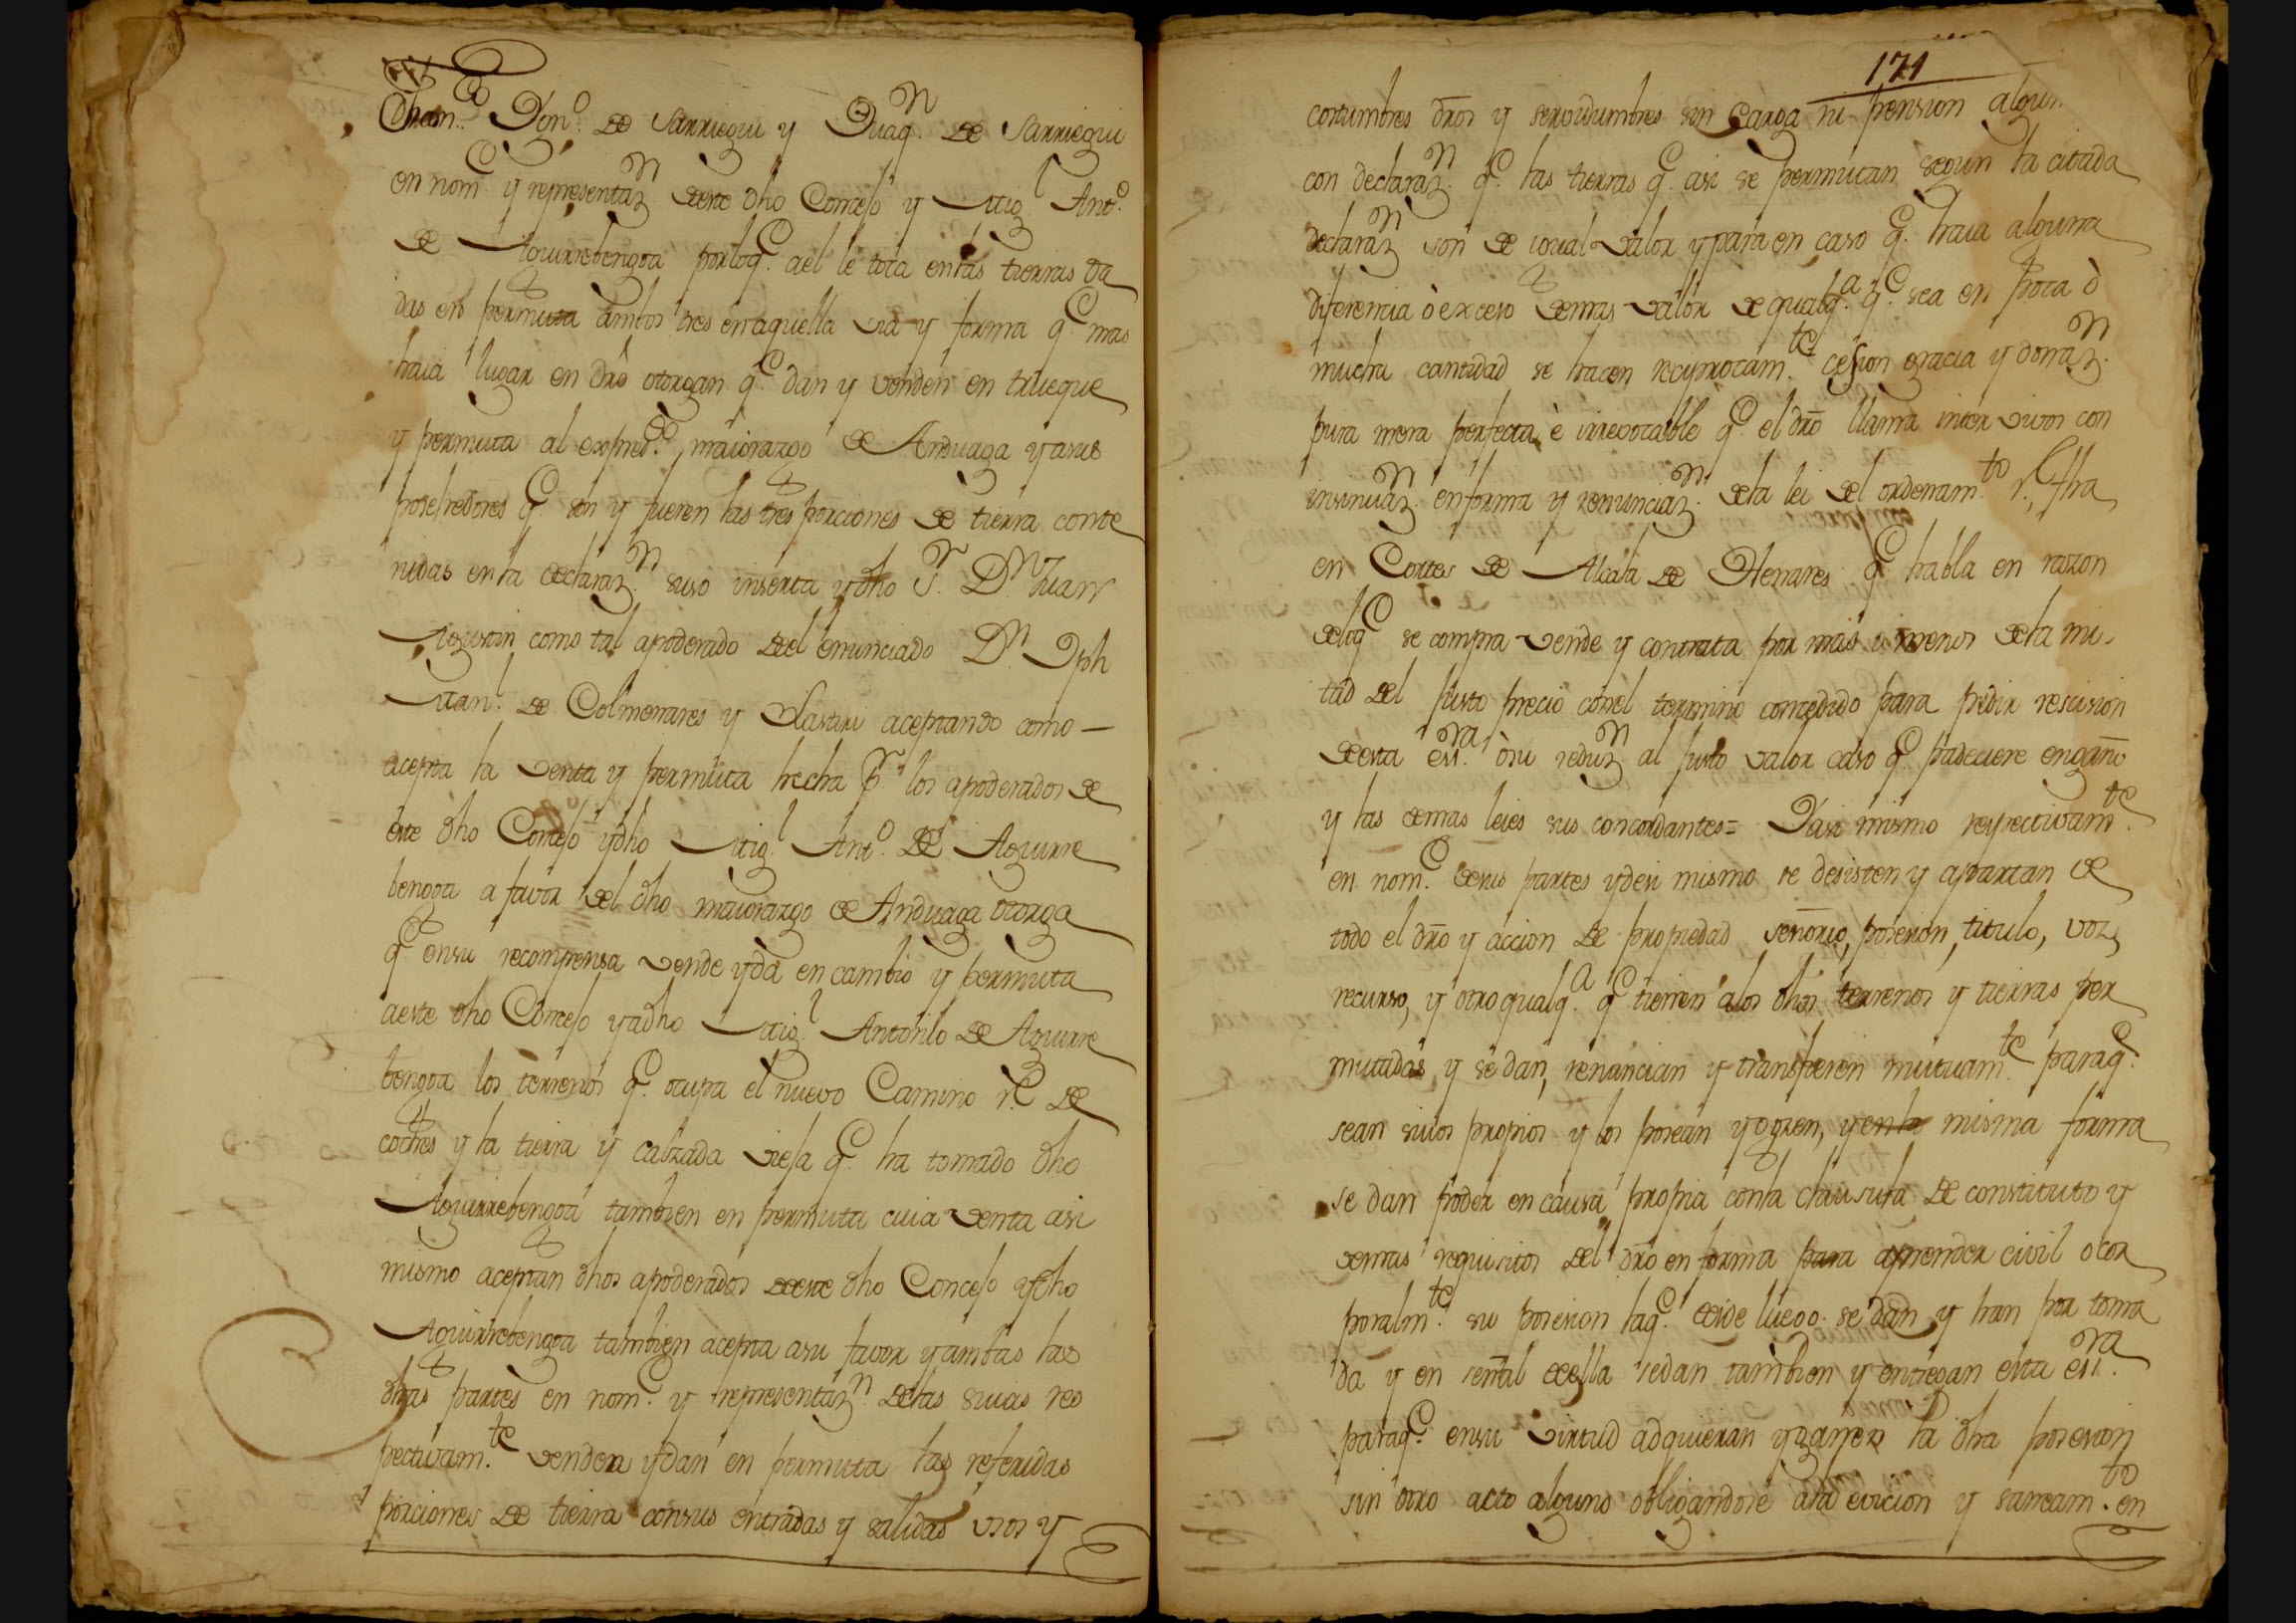 Dhos Ygn.º de Sarriegui y Juaq.n de Sarriegui
en nom.e y representaz.n deeste dho Concejo y Mig.l Ant.º
de Aguirrebengoa porloq.e aèl le toca enlas tierras da
das en permuta ambos tres enaquella via y forma q.e mas
haia lugar en drō otorgan q.e dan y venden en trueque
y permuta al expres.do maiorazgo de Anduaga yasus
posehedores q.e son y fueren las tres porciones de tierra conte
nidas enla declaraz.n suso inserta ydho S.r D.n Juan
Agustin como tal apoderado del enunciado D.n Jph
Man.l de Colmenares y Olastiri aceptando como —
acepta la venta y permuta hecha p.r los apoderados de
este dho Concejo ydho Mig.l Ant.º de Aguirre
bengoa a favor del dho maiorazgo de Anduaga otorga
q.e ensu recompensa vende yda en cambio y permuta
aeste dho Concejo yadho Mig.l Antonio de Aguirre
bengoa los terrenos q.e ocupa el nuevo Camino r.l de
coches y la tierra y calzada vieja q.e ha tomado dho
Aguirrebengoa tambien en permuta cuia venta asi
mismo aceptan dhos apoderados deeste dho Concejo ydho
Aguirrebengoa tambien acepta asu favor yambas las
dhas partes en nom.e y representaz.n delas suias res
pectivam.te venden ydan en permuta las referidas
porciones de tierra consus entradas y salidas usos y
171
costumbres drōs y servidumbres sin carga ni pension algu
con declaraz.n q.e las tierras q.e asi se permutan segun la citada
declaraz.n son de igual valor ypara en caso q.e haia alguna
diferencia ò exceso demas valor de qualq.a q.e sea en poca ò
mucha cantidad se hacen reciprocam.te cesion gracia y donaz.n
pura mera perfecta è irrevocable q.e el drō llama inter vivos con
insinuaz.n enforma y renunciaz.n dela lei del ordenam.to r.l fha
en Cortes de Alcala de Henares q.e habla en razon
deloq.e se compra vende y contrata por mas o menos dela mi
tad del justo precio conel termino concedido para pedir rescision
deesta ess.ra òsu reduz.n al justo valor caso q.e padeciere engaño
y las demas leies sus concordantes= Yasi mismo respectivam.te
en nom.e desus partes ydesi mismo se desisten y apartan de
todo el drō y accion de propiedad señorio, posesion, titulo, voz,
recurso, y otro qualq.a q.e tienen alos dhos terrenos y tierras per
mutadas, y se dan, renuncian y transfieren mutuam.te paraq.e
sean suios propios y los posean ygozen, yenla misma forma
se dan poder en causa propia conla clausula de constituto y
demas requisitos del drō en forma para aprender civil o cor
poralm.te su posesion laq.e desde luego se dan y han por toma
da y en señal deella sedan tambien y entregan esta ess.ra
paraq.e ensu virtud adquieran yganen la dha posesion
sin otro acto alguno obligandose ala evicion y saneam.to en